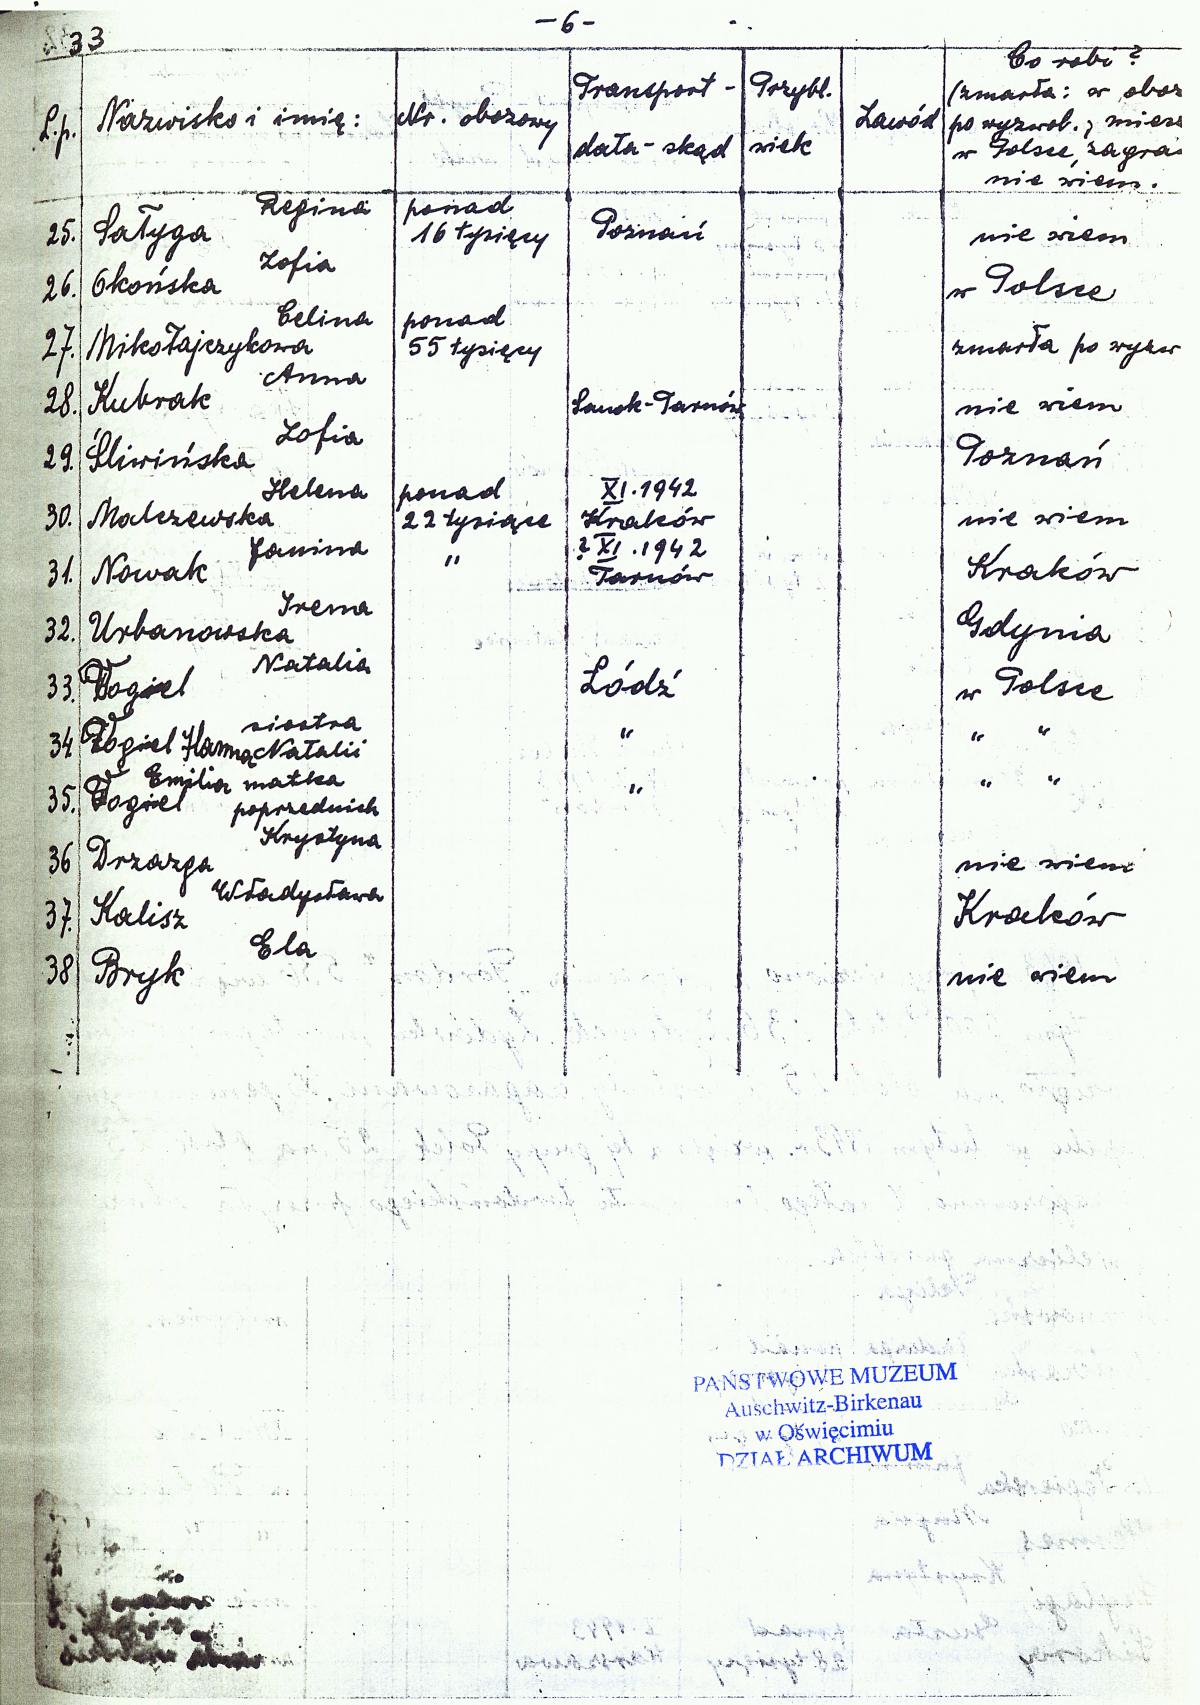 33
-6-
L.p. Nazwisko i imię: Nr. obozowy Transport - data - skąd Przybl. wiek Zawód Co robi?
(zmarła: w oboz
po wyzwol., miesz
w Polsce, zagra
nie wiem.
25. Sałyga Regina ponad 16 tysięcy Poznań nie wiem
26. Okońska Zofia w Polsce
27. Mikołajczykowa Celina ponad 55 tysięcy zmarła po wyzw
28. Kubrak Anna Sanok-Tarnów nie wiem
29. Śliwińska Zofia Poznań
30. Malczewska Helena ponad 22 tysiące XI.1942 Kraków nie wiem
31. Nowak Janina " ? XI.1942 Tarnów Kraków
32. Urbanowska Irena Gdynia
33. Vogiel Natalia Łódź w Polsce
34 Vogiel Hanna siostra Natalii " " "
35. Vogiel Emilia matka poprzednich " " "
36 Drzazga Krystyna nie wiem
37. Kalisz Władysława Kraków
38 Bryk Ela nie wiem
PAŃSTWOWE MUZEUM
Auschwitz-Birkenau
w Oświęcimiu
DZIAŁ ARCHIWUM